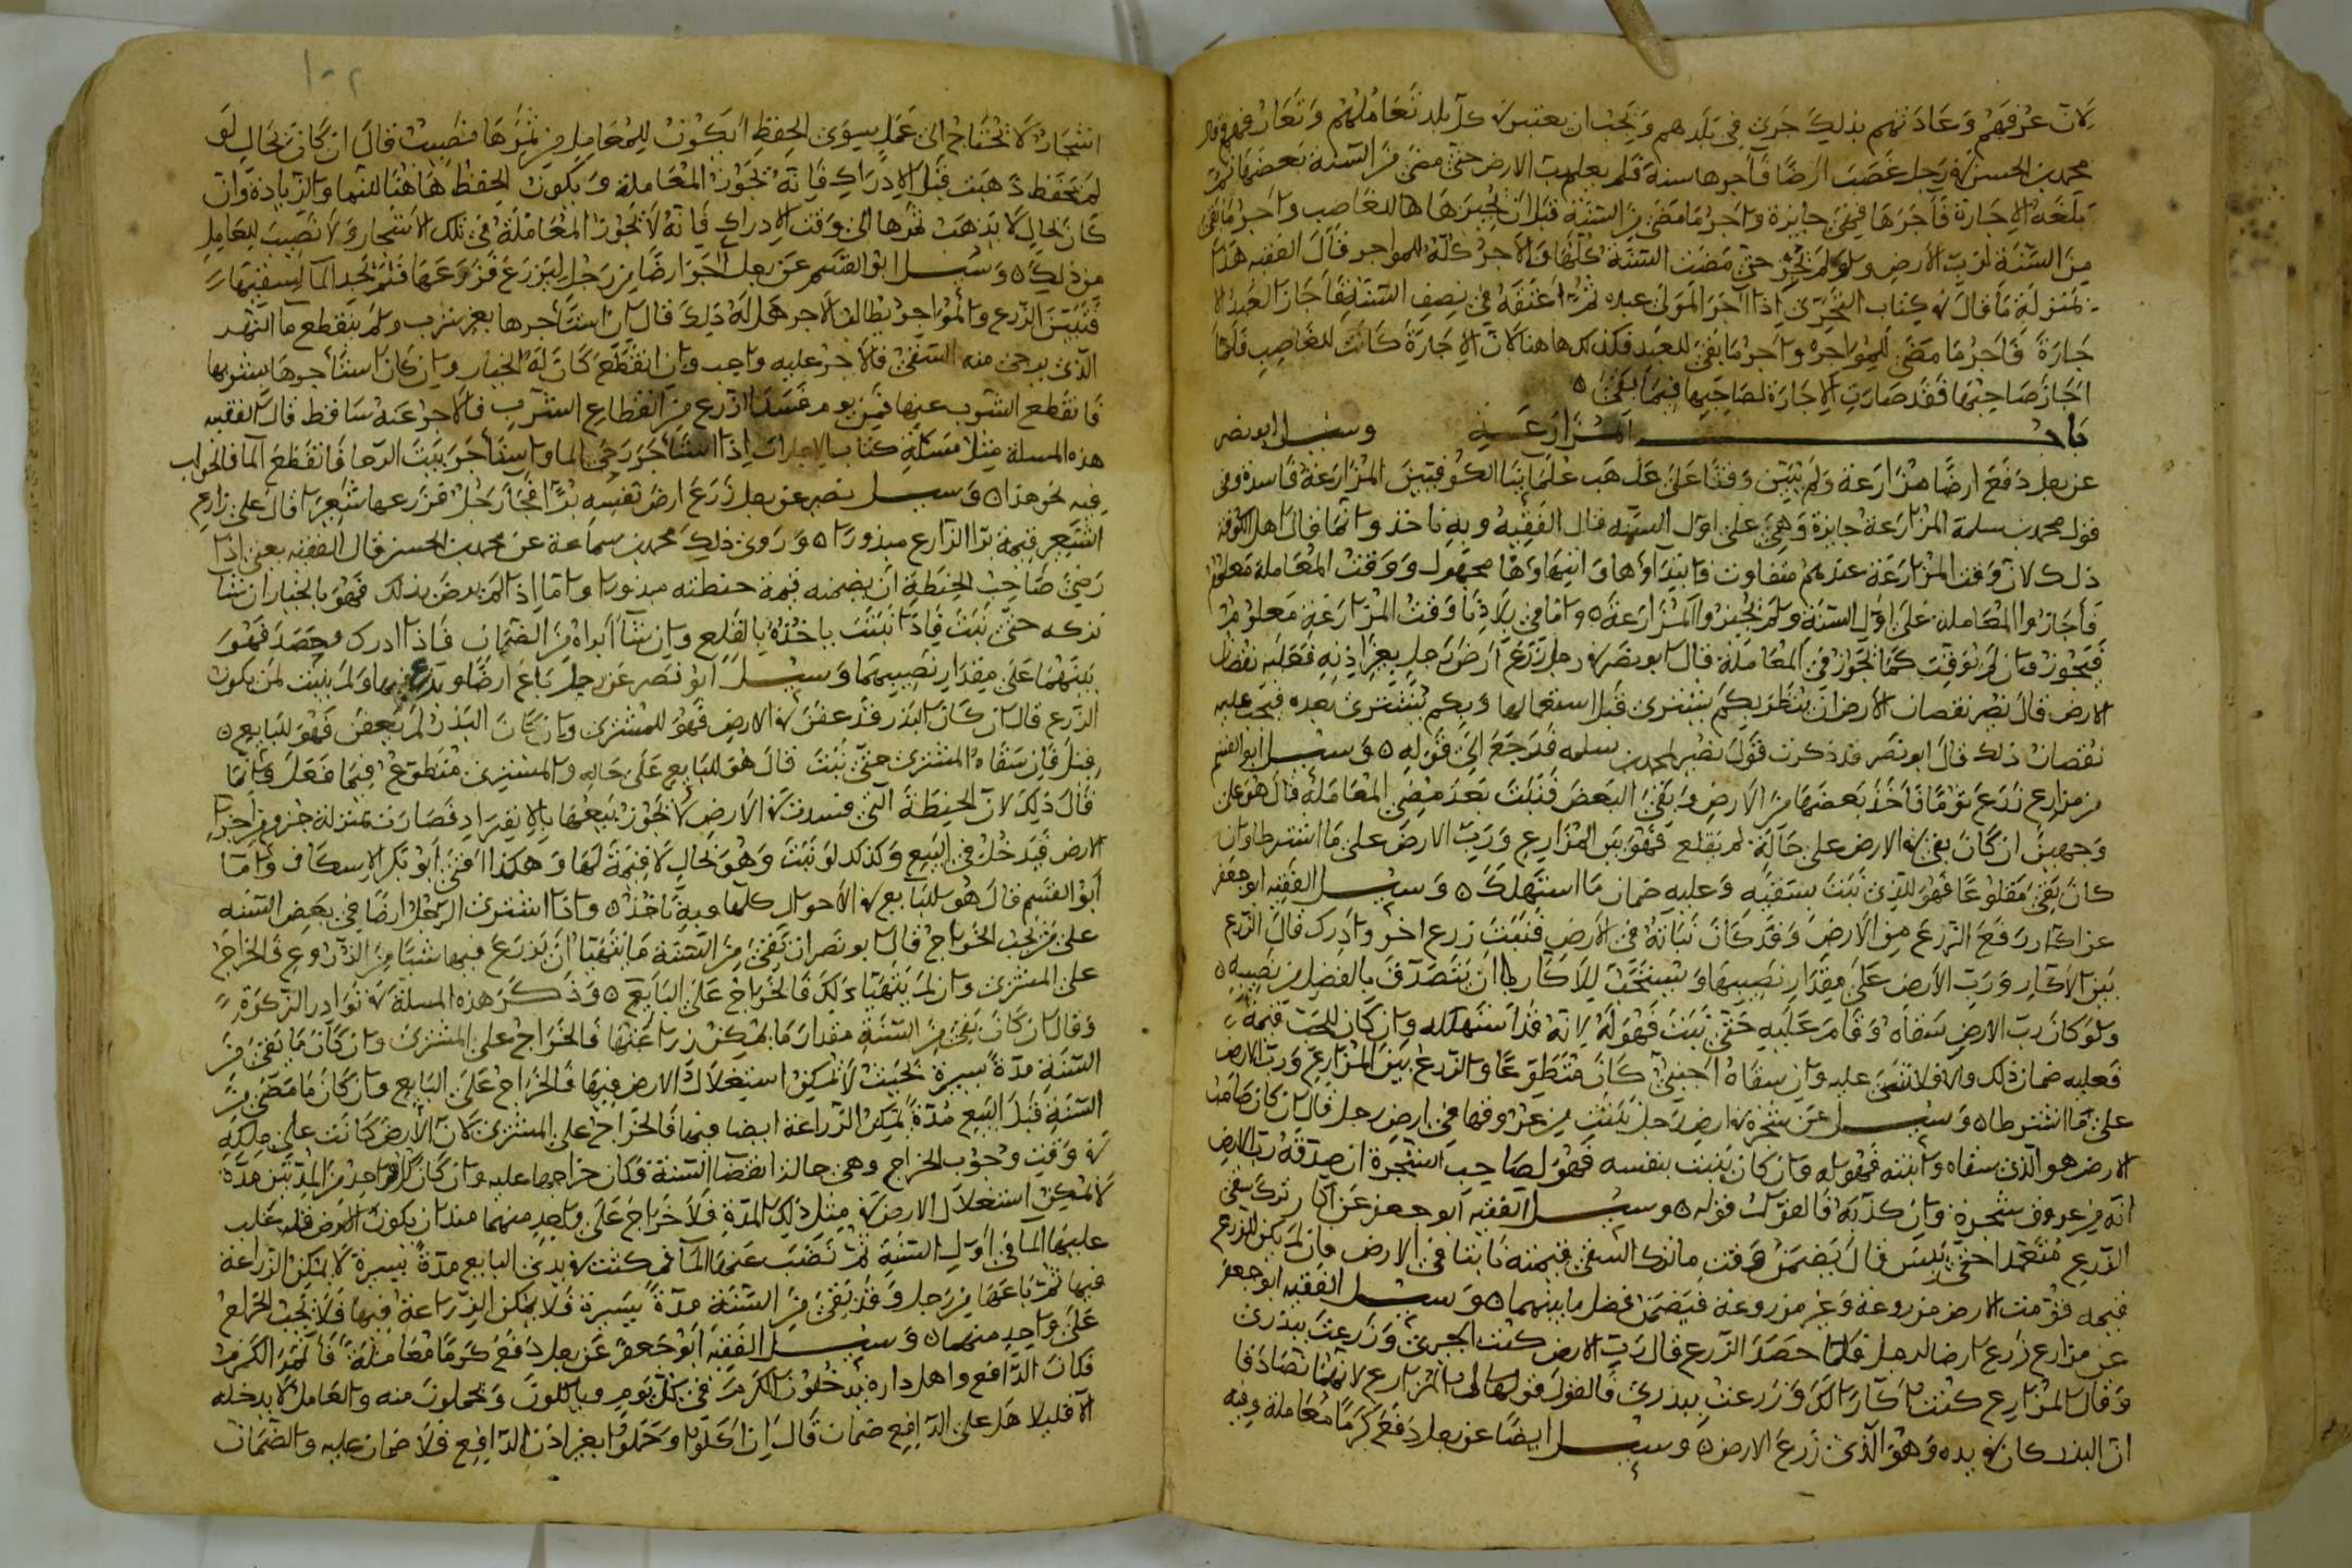 لان عرفهم وعادتهم بذلك جرى في بلدهم ويجب ان يعتبر في كل بلد تعاملهم وتعارفهم وقال
محمد بن الحسن في رجل غصب ارضا فآجرها سنة فلم يعلم رب الارض حتى مضى من السنة بعضها ثم
بلغه الاجارة فأجرها فهي جايزة واجر ما مضى من السنة قبل ان يجيزها للغاصب واجر ما بقي
من السنة لرب الارض ولو لم يجز حتى مضت السنة كلها فالاجر كله للمواجر قال الفقيه هذا
بمنزلة ما قال في كتاب التحري اذا آجر المولى عبده ثم اعتقه في نصف السنة فاجاز العبد الا
جارة فأجر ما مضى للمواجر واجر ما بقي للعبد فكذلك هاهنا لان الاجارة كانت للغاصب فلما
اجاز صاحبها فقد صارت الاجارة لصاحبها فيما بقي
باب المزارعة وسئل ابو نصر
عن رجل دفع ارضا مزارعة ولم يبين وقتا على مذهب علمائنا الكوفيين المزارعة فاسدة وفي
قول محمد بن سلمة المزارعة جايزة وهي على اول السنة قال الفقيه وبه ناخذ وانما قال اهل الكوفة
ذلك لان وقت المزارعة عندهم متفاوت فابتداؤها وانتهاؤها مجهول ووقت المعاملة معلوم
فأجازوا المعاملة على اول السنة ولم يجيزوا المزارعة واما في بلادنا وقت المزارعة معلوم
فيجوز وان لم يوقت كما يجوز في المعاملة قال ابو نصر في رجل زرع ارض رجل بغير اذنه فعليه نقصان
الارض قال نصر نقصان الارض ان ينظر بكم يشترى قبل استعمالها وبكم يشترى بعده فيجب عليه
نقصان ذلك قال ابو نصر قد ذكرت قول نصير لمحمد بن سلمه فرجع الى قوله وسئل ابو القسم
عن مزارع زرع ثوما فأخذ بعضها من الارض وبقي البعض فنبت بعد مضي المعاملة قال هو على
وجهين ان كان بقي في الارض على حاله لم يقلع فهو بين المزارع ورب الارض على ما اشترطا وان
كان بقي مقلوعا فهو للذي نبت بسقيه وعليه ضمان ما استهلك وسئل الفقيه ابو جعفر
عن اكار رفع الزرع من الارض وقد كان نباته في الارض فنبت زرع اخر وادرك قال الزرع
بين الاكار ورب الارض على مقدار نصيبهما ويستحب للاكار ان يتصدق بالفضل من نصيبه
ولو كان رب الارض سقاه وقام عليه حتى نبت فهو له لانه قد استهلكه وان كان للحب قيمة
فعليه ضمان ذلك والا فلا شيء عليه وان سقاه اجنبي كان متطوعا والزرع بين المزارع ورب الارض
على ما اشترطا وسئل عن شجرة في ارض رجل نبتت من عروقها في ارض رجل قال ان كان صاحب
الارض هو الذي سقاه وانبته فهو له وان كان نبتت بنفسه فهو لصاحب الشجرة ان صدقه رب الارض
انه من عروق شجرة وان كذبه فالقول قوله وسئل الفقيه ابو جعفر عن اكار ترك سقي
الزرع متعمدا حتى يبس قال يضمن وقت ما ترك السقي قيمته نابتا في الارض وان لم يكن للزرع
قيمه قومت الارض مزروعة وغير مزروعة فيضمن فضل ما بينهما وسئل الفقيه ابو جعفر
عن مزارع زرع ارضا لرجل فلما حصد الزرع قال رب الارض كنت اجيري وزرعت ببذري
وقال المزارع كنت اكارا لك وزرعت ببذري فالقول قول المزارع لانهما تصادقا
ان البذر كان في يده وهو الذي زرع الارض وسئل ايضا عن رجل دفع كرما معاملة وفيه
١٠٢
اشجار لا تحتاج الى عمل سوى الحفظ ايكون للمعامل من ثمرها نصيب قال ان كان بحال لو
لم تحفظ ذهبت قبل الادراك فانه تجوز المعاملة ويكون الحفظ هاهنا للنما والزيادة وان
كان بحال لا يذهب ثمرها الى وقت الادراك فانه لا تجوز المعاملة في تلك الاشجار ولا نصيب للعامل
من ذلك وسئل ابو القسم عن رجل آجر ارضا من رجل ليزرع فزرعها فلم يجد الماء ليسقيها
فيبس الزرع والمؤاجر يطالب الاجر هل له ذلك قال ان استأجرها بغير شرب ولم ينقطع ما النهر
الذي يرجى منه السقي فالاجر عليه واجب وان انقطع كان له الخيار وان كان استأجرها بشربها
فانقطع الشرب عنها فمن يوم فسد الزرع من انقطاع الشرب فالاجر عنه ساقط قال الفقيه
هذه المسلة مثل مسئلة كتاب الاجارات اذا استأجر رحى الما او استأجر بيت الرحا فانقطع الما فالجواب
فيه نحو هذا وسئل نصير عن رجل زرع ارض نفسه برا فجا رجل فزرعها شعيرا قال على زارع
الشعير قيمة بر الزارع مبذورا وروى ذلك محمد بن سماعة عن محمد بن الحسن قال الفقيه يعني اذا
رضي صاحب الحنطة ان يضمنه قيمة حنطته مبذورا واما اذا لم يرض بذلك فهو بالخيار ان شا
تركه حتى نبت فاذا نبت ياخذه بالقلع وان شا ابراه من الضمان فاذا ادرك وحصد فهو
بينهما على مقدار نصيبهما وسئل ابو نصر عن رجل باع ارضا وبذرع فيها ولم ينبت لمن يكون
الزرع قال ان كان البذر قد عفن في الارض فهو للمشتري وان كان البذر لم يعفن فهو للبايع
قيل فان سقاه المشتري حتى نبت قال هو للبايع على حاله والمشتري متطوع فيما فعل وانما
قال ذلك لان الحنطة التي فسدت في الارض لا يجوز بيعها بالانفراد فصارت بمنزلة جزء من اجزا
الارض فيدخل في البيع وكذلك لو نبت وهو بحال لا قيمة لها وهكذا افتى ابو بكر الاسكاف واما
ابو القسم قال هو للبايع في الاحوال كلها وبه ناخذ واذا اشترى الرجل ارضا في بعض السنه
على من يجب الخراج قال ابو نصر ان بقي من السنة ما يتهيأ ان يزرع فيها شيئا من الزروع فالخراج
على المشتري وان لم يتهيأ ذلك فالخراج على البايع وذكر هذه المسلة في نوادر الزكوة
وقال ان كان بقي من السنة مقدار ما يمكن زراعتها فالخراج على المشتري وان كان ما بقي من
السنة مدة يسيرة بحيث لا يمكن استغلال الارض فيها فالخراج على البايع وان كان ما مضى من
السنة قبل البيع مدة يمكن الزراعة ايضا فيها فالخراج على المشتري لان الارض كانت على ملكه
في وقت وجوب الخراج وهي حالة انقضا السنة فكان خراجها عليه وان كان كل واحد من المدتين مدة
لا يمكن استغلال الارض في مثل ذلك المدة فلا خراج على واحد منهما مثل ان يكون الارض قد غلب
عليها الما في اول السنة ثم نضب عنها الما فمكثت في يدي البايع مدة يسيرة لا يمكن الزراعة
فيها ثم باعها من رجل وقد بقي من السنة مدة يسيرة فلا يمكن الزراعة فيها فلا يجب الخراج
على واحد منهما وسئل الفقيه ابو جعفر عن رجل دفع كرما معاملة فاثمر الكرم
فكان الدافع واهل داره يدخلون الكرم في كل يوم وياكلون ويحملون منه والعامل لا يدخله
الا قليلا هل على الدافع ضمان قال ان اكلوا وحملوا بغير اذن الدافع فلا ضمان عليه والضمان